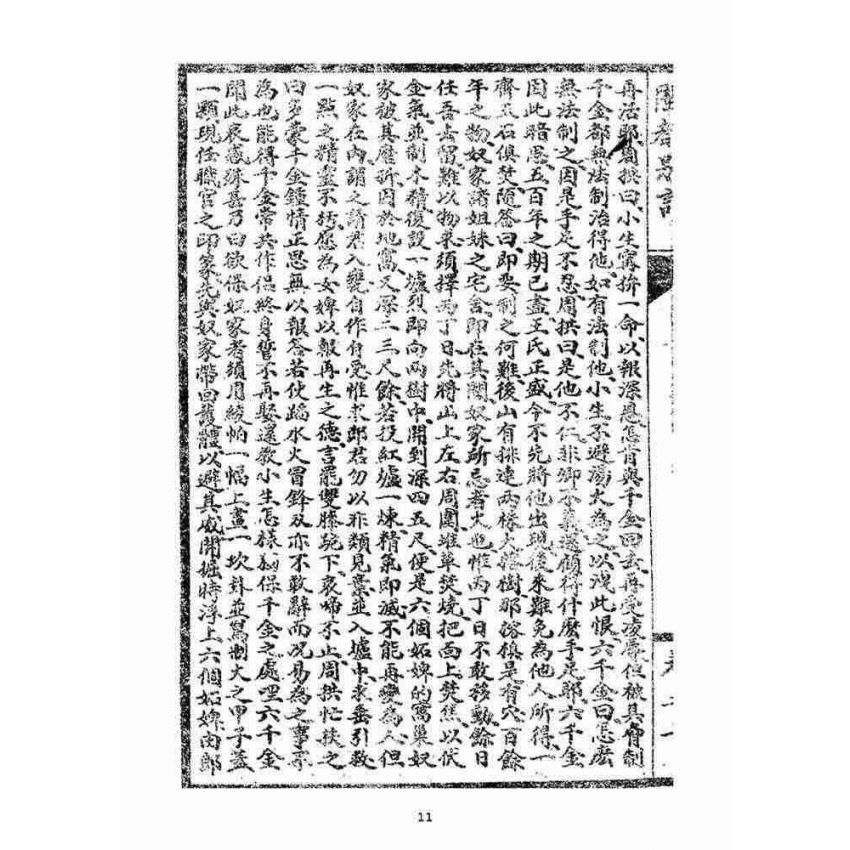 再活耶周拱曰小生寗拚一命以報深恩怎肯與千金回去再受凌蒙但被其脅制
千金都無法制治得他如有法制他小生不避湯火為之以洩此恨六千金曰怎麽
無法制之因是手足不忍周拱曰是他不仁非卿不義還顧得什麽手足耶六千金
因此暗思五百年之期已盡王氏正盛今不先將他出現後來難免為他人所得一
齊玉石俱焚隨答曰即要制之何難後山有排連兩樣大樹那溶積是有穴百餘
年之物奴家諸姐妹之宅舍即在其間奴家所忌者火也惟丙丁日不敢移動餘日
任吾去留難以物色須擇丙丁日先將山上左右周圍堆草焚燒把面上焚焦以伏
金氣並制木精復設一爐烈即向兩樹中開到深四五尺便是六個妬婢的寓巢奴
家被其磨折因於地窩又深二三尺餘若投紅爐一煉精氣即滅不能再變為人但
奴家在內謂之請君入甕自作自受惟求郎君勿以非類見棄並入爐中求垂引救
一點之精靈不朽愿為女婢以報再生之德言罷雙膝跪下哀啼不止周拱忙扶之
曰多蒙千金鍾情正思無以報答若使蹈水火冒鋒刃亦不敢辭而况易為之事乎
為也能得千金常共作侶終身誓不再娶還教小生怎樣保千金之處哩六千金
聞此哀慼殊甚乃曰欲保奴家者須用綾帕一幅上畫一坎卦並寫制火之甲子蓋
一顆現任職官之印篆先與奴家帶回護體以避其威開掘時浮上六個妬婢由郎
11